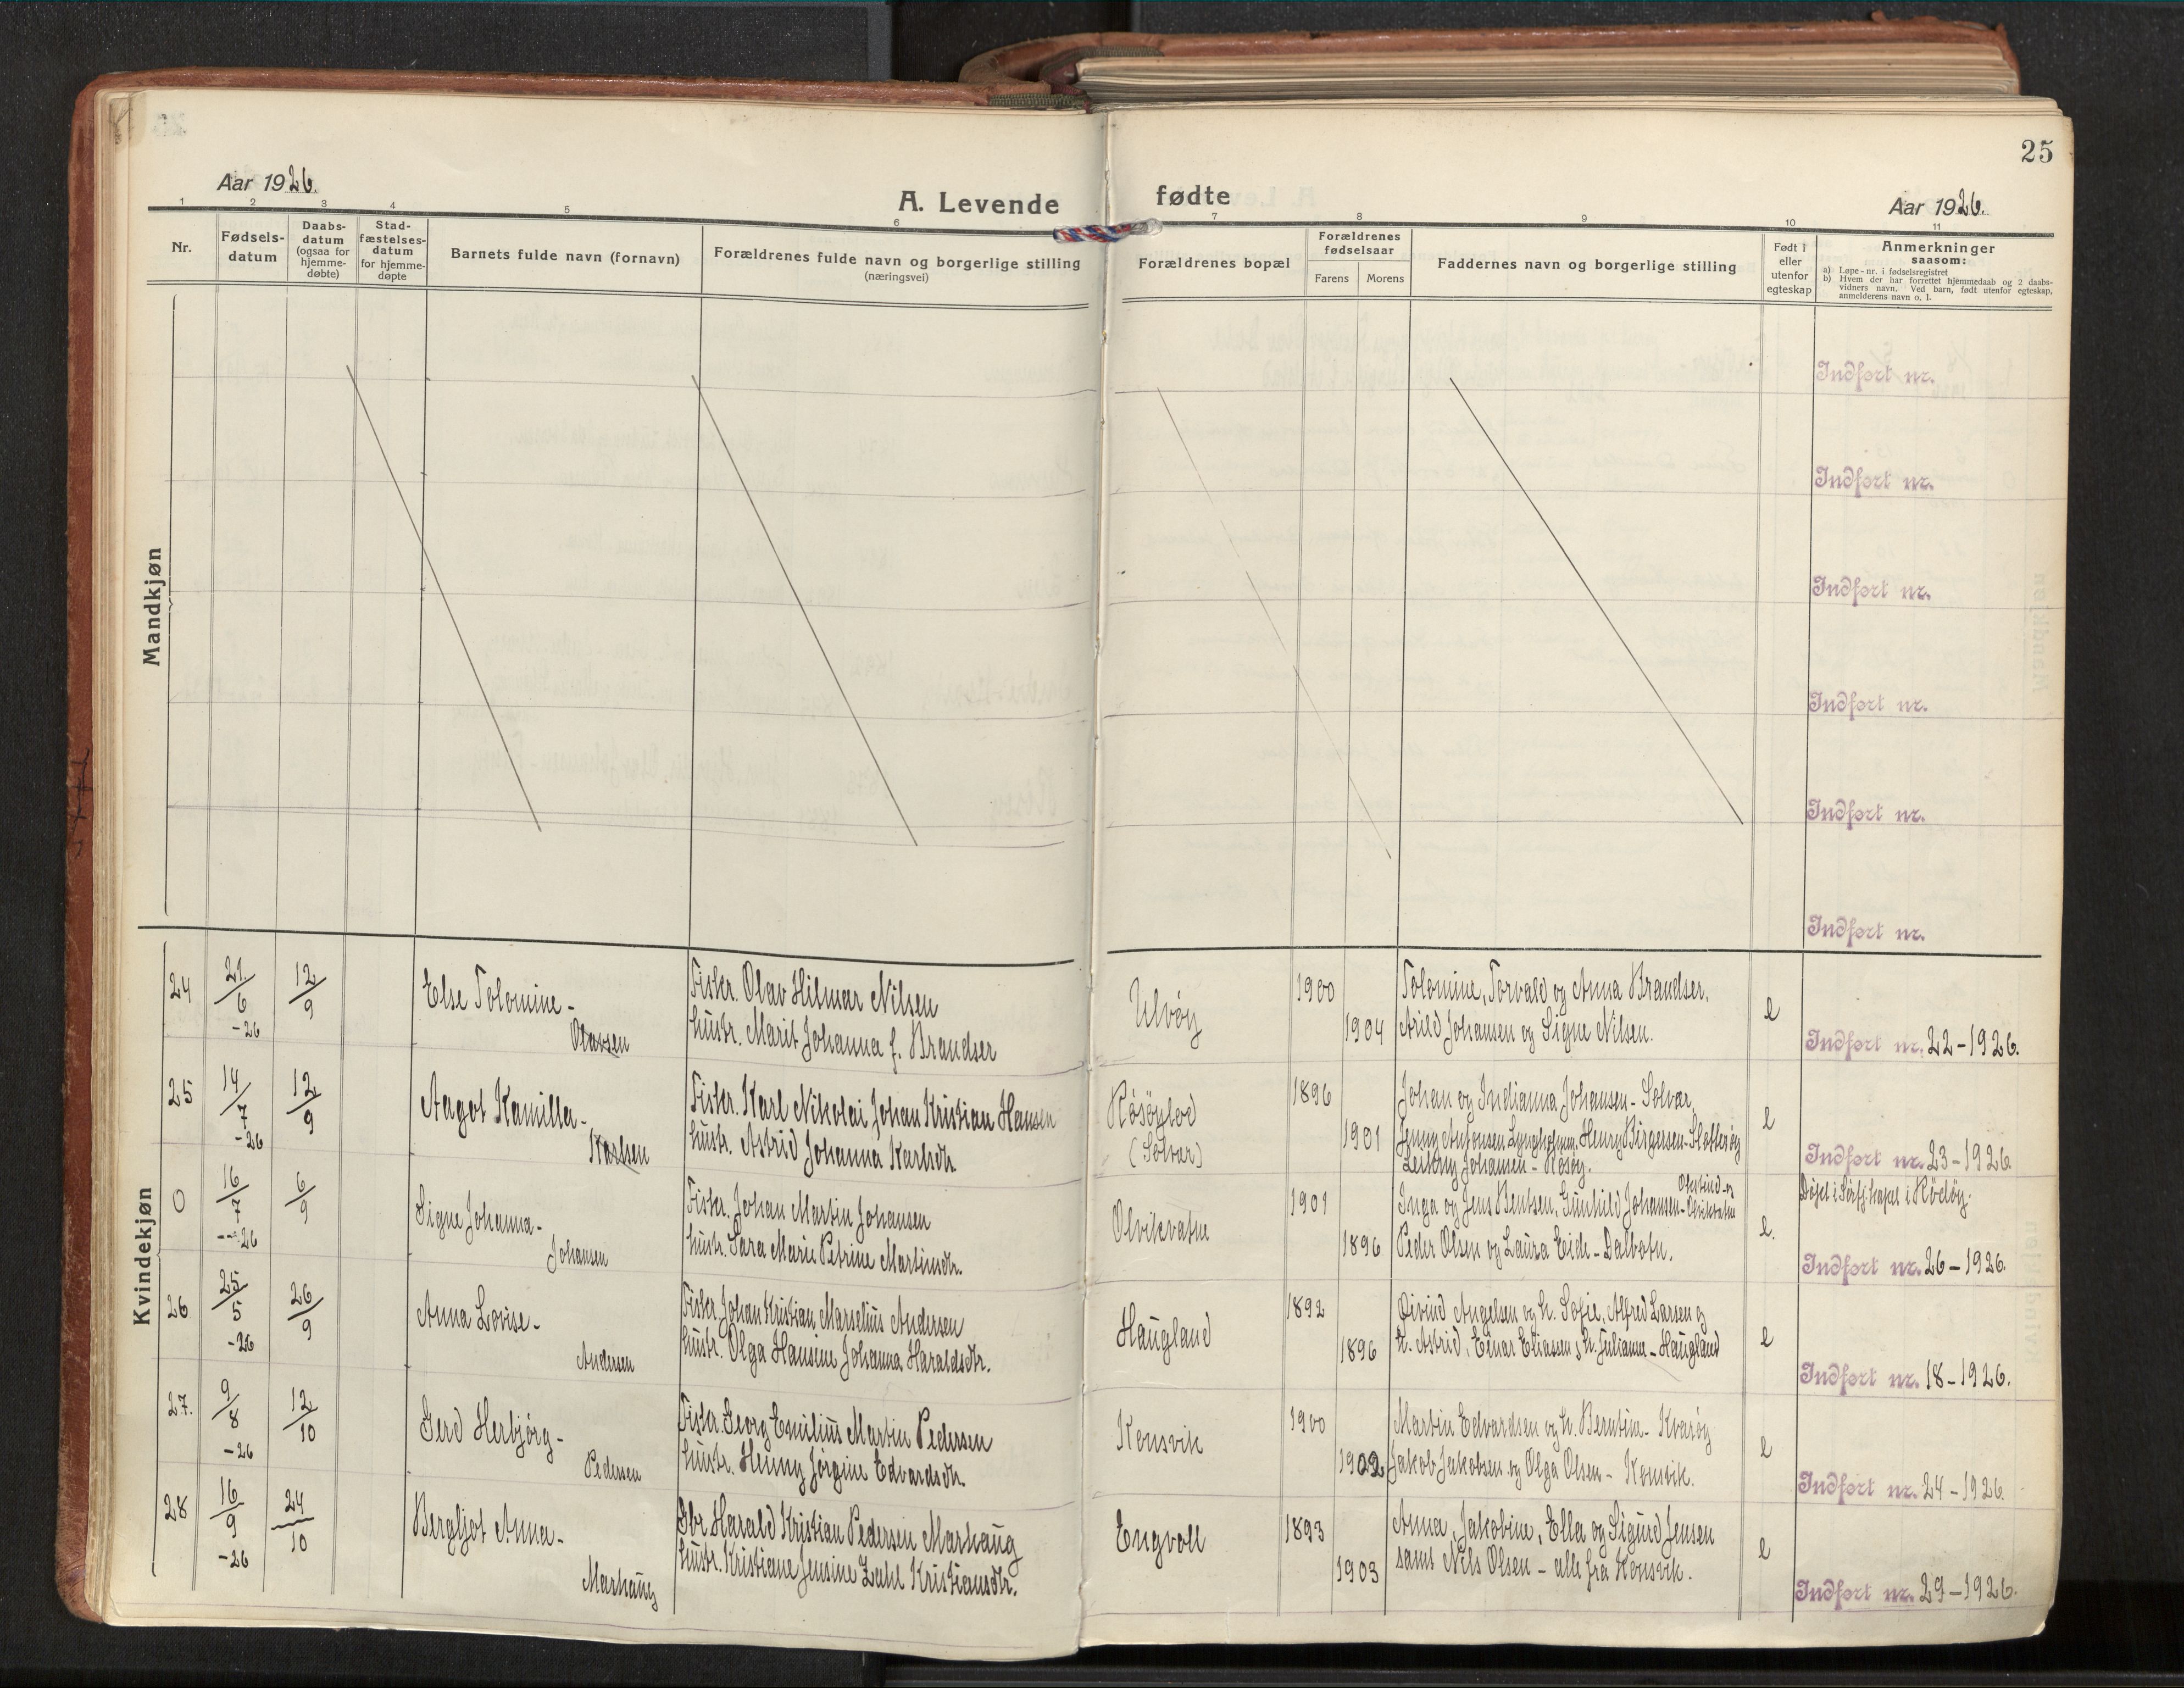 25
Aar 1926.
A. Levende fødte
Aar 1926.
1 2 3 4 5 6 7 8 9 10 11
Nr.
Fødsels-
datum
Daabs-
datum
(ogsaa for
hjemme-
døbte)
Stad-
fæstelses-
datum
for hjemme-
døpte
Barnets fulde navn (fornavn)
Forældrenes fulde navn og borgerlige stilling
(næringsvei)
Forældrenes bopæl
Forældrenes
fødselsaar
Farens Morens
Faddernes navn og borgerlige stilling
Født i
eller
utenfor
egteskap
Anmerkninger
saasom:
a) Løpe-nr. i fødselsregistret
b) Hvem der har forrettet hjemmedaab og 2 daabs-
vidners navn. Ved barn, født utenfor egteskap,
anmelderens navn o. l.
Mandkjøn
Indført nr.
Indført nr.
Indført nr.
Indført nr.
Indført nr.
Indført nr.
Kvindekjøn
24 21/6 -26 12/9 Else Tolomine -
Olavsen
Fisker. Olav Hilmar Nilsen
hustr. Marit Johanna f. Brandser
Ulvøy 1900 1904
Tolomine, Torvald og Anna Brandser,
Arild Johansen og Signe Nilsen.
e
Indført nr. 22-1926.
25 14/7 -26 12/9 Aagot Kamilla -
Karlsen
Fisker. Karl Nikolai Johan Kristian Hansen
hustr. Astrid Johanna Karlsdtr.
(Solvær) 1896 1901
Johan og Indianna Johansen - Solvær,
Jenny Antonsen Henry Birgersen - Sletterøy
Johansen - Røsøy.
e
Indført nr. 23-1926
0 16/7 -26 6/9 Signe Johanna -
Johansen
Fisker. Johan Martin Johansen
hustr. Sara Marie Petrine Martinsdtr.
Olvikvatne 1901 1896
Inga og Jens Bentsen, Gunhild Johansen - Olvikvatne
Peder Olsen og Laura Eide - Dalbotn.
e.
Døpt i Sørfj. kapel i Rødøy.
Indført nr. 26-1926.
26 25/5 -26 26/9 Anna Lovise -
Andersen
Fisker Johan Kristian Marselius Andersen
hustr. Olga Hansine Johanna Haraldsdtr.
Haugland 1892 1896
Øivind Angelsen og h. Sofie, Alfred Larsen og
h. Astrid, Einar Eliasen, h. Julianne - Haugland
e
Indført nr. 18-1926.
27. 9/8 -26 12/10 Gerd Herbjørg -
Pedersen
Fisker. Georg Emilius Martin Pedersen
hustr. Henny Jørgine Edvardsdtr.
Konsvik 1900 1902
Martin Edvardsen og h. Berntine - Kvarøy
Jakob Jakobsen og Olga Olsen - Konsvik.
e
Indført nr. 24-1926.
28 16/9 -26 24/10 Bergljot Anna -
Marhaug
Gbr. Harald Kristian Pedersen Marhaug
hustr. Kristiane Jensine Zahl Kristiansdtr.
Engvoll 1893 1903
Anna, Jakobine, Ella og Sigurd Jensen
samt Nils Olsen - alle fra Konsvik.
e
Indført nr. 29-1926.